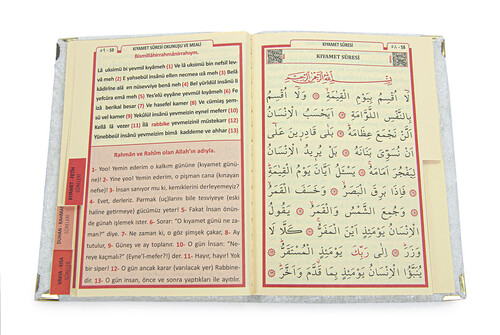 KIYAMET SÛRESİ OKUNUŞU VE MEALİ
Bismillâhirrahmânirrahıym.
Lâ uksimü bi yevmil kıyâmeh (1) Ve lâ uksimü bin nefsil lev-
vâmeh (2) E yahsebül insânü ellen necmea ızâmeh (3) Belâ
kâdirîne alâ en nüsevviye benâneh (4) Bel yürîdül insânü li
yefcüra emâmeh (5) Yes'elü eyyâne yevmül kıyâmeh (6) Fe
izâ berikal besar (7) Ve hasefel kamer (8) Ve cümiaş şem-
sü vel kamer (9) Yekûlül insânü yevmeizin eynel meferr (10)
Kellâ lâ vezer (11) İlâ rabbike yevmeizinil müstekarr (12)
Yünebbeül insânü yevmeizim bimâ kaddeme ve ahhar (13)
Rahmân ve Rahîm olan Allah'ın adıyla.
1- Yoo! Yemin ederim o kalkım gününe (kıyamet günü-
ne)! 2- Yine yoo! Yemin ederim, o pişman cana (kınayan
nefse)! 3- İnsan sanıyor mu ki, kemiklerini derlemeyiz?
4- Evet, derleriz. Parmak (uç)larını bile tesviyeye (eski
haline getirmeye) gücümüz yeter! 5- Fakat İnsan önün-
de günah işlemek ister 6- Sorar: "O kıyamet günü ne za-
man?" diye. 7- Ne zaman ki, o göz şimşek çakar, 8- Ay
tutulur, 9- Güneş ve ay toplanır. 10- O gün İnsan: "Ne-
reye kaçmalı?" (Eyne'l-mefer?!) der. 11- Hayır, hayır! Yok
bir siper! 12- O gün ancak karar (varılacak yer) Rabbine-
dir. 13- O gün insan, önce ve sonra yaptıkları ile ayıtılır.
KIYAMET - FETİH
DUHAN - RAHMAN
VAKIA - KISA
KIYAMET SÛRESİ
٥٨ - 58
KIYAMET SÛRESİ
بِسْمِ اللّٰهِ الرَّحْمٰنِ الرَّحِيمِ
لَٓا اُقْسِمُ بِيَوْمِ الْقِيٰمَةِۙ وَلَٓا اُقْسِمُ
بِالنَّفْسِ اللَّوَّامَةِ اَيَحْسَبُ الْاِنْسَانُ
اَلَّنْ نَجْمَعَ عِظَامَهُ بَلٰى قَادِرِينَ عَلٰٓى
اَنْ نُسَوِّيَ بَنَانَهُ بَلْ يُرِيدُ الْاِنْسَانُ
لِيَفْجُرَ اَمَامَهُ يَسْـَٔلُ اَيَّانَ يَوْمُ الْقِيٰمَةِ
فَاِذَا بَرِقَ الْبَصَرُ وَخَسَفَ الْقَمَرُ
وَجُمِعَ الشَّمْسُ وَالْقَمَرُ يَقُولُ
الْاِنْسَانُ يَوْمَئِذٍ اَيْنَ الْمَفَرُّ كَلَّا لَا
وَزَرَ اِلٰى رَبِّكَ يَوْمَئِذٍ الْمُسْتَقَرُّ
يُنَبَّؤُا الْاِنْسَانُ يَوْمَئِذٍ بِمَا قَدَّمَ وَاَخَّرَ